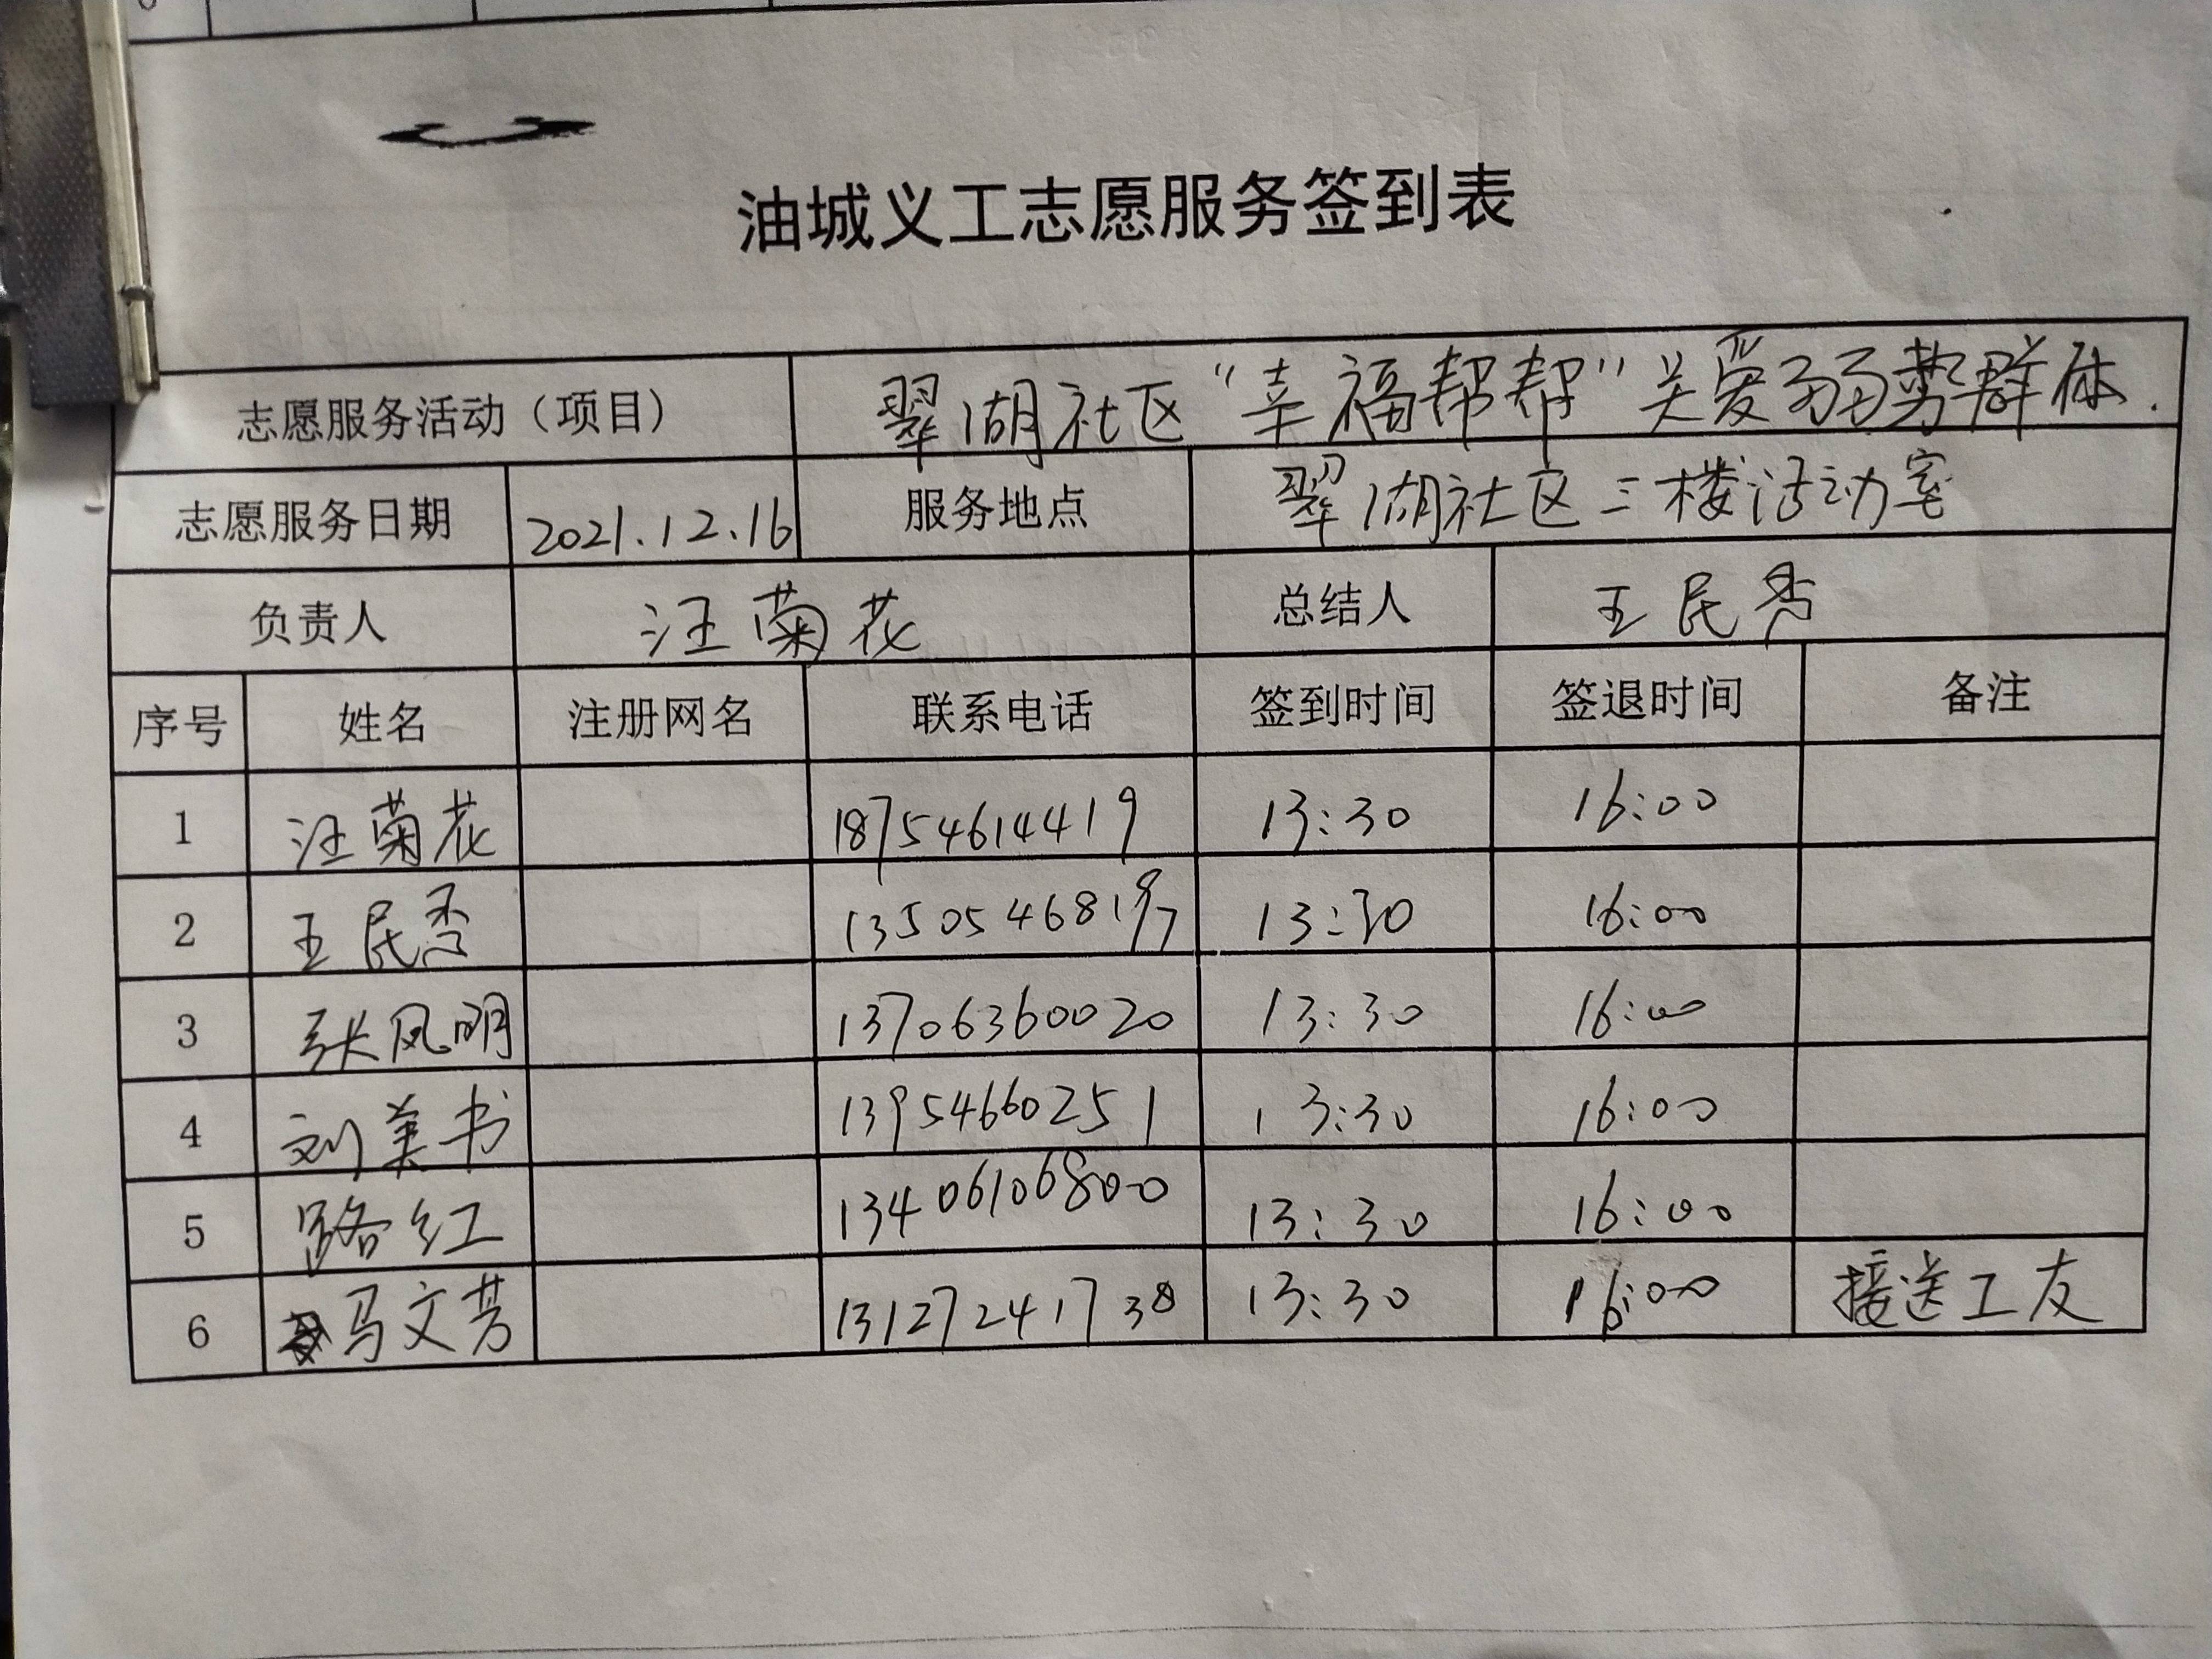 油城义工志愿服务签到表
志愿服务活动（项目） 翠湖社区“幸福帮帮”关爱弱势群体.
志愿服务日期 2021.12.16 服务地点 翠湖社区三楼活动室
负责人 汪菊花 总结人 王民秀
序号 姓名 注册网名 联系电话 签到时间 签退时间 备注
1 汪菊花 18754614419 13:30 16:00
2 王民秀 13505468197 13:30 16:00
3 张凤明 13706360020 13:30 16:00
4 刘美书 13954660251 13:30 16:00
5 路红 13406106800 13:30 16:00
6 马文芳 13127241738 13:30 16:00 接送工友